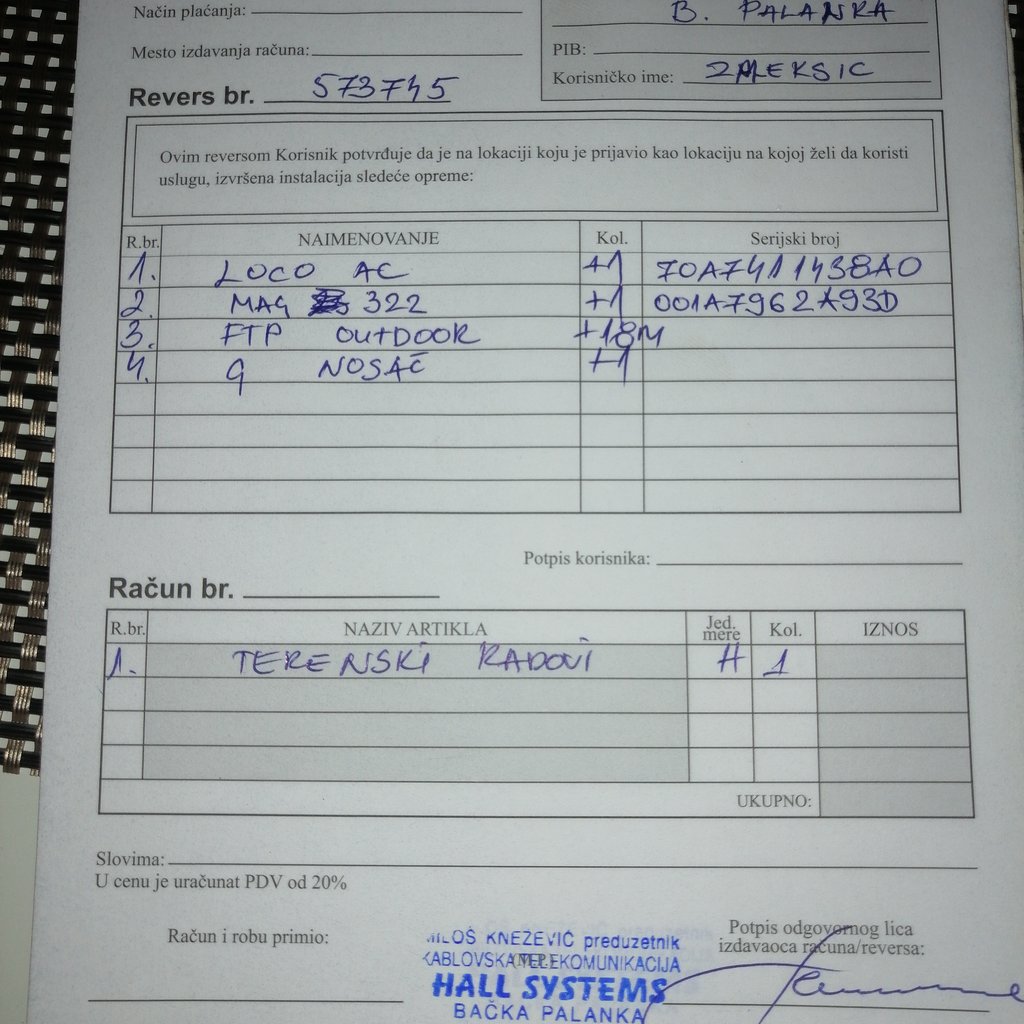 Način plaćanja:
B. PALANKA
Mesto izdavanja računa:
PIB:
Korisničko ime: ZALEKSIC
Revers br. 573745
Ovim reversom Korisnik potvrđuje da je na lokaciji koju je prijavio kao lokaciju na kojoj želi da koristi
uslugu, izvršena instalacija sledeće opreme:
R.br. NAIMENOVANJE Kol. Serijski broj
1. LOCO AC +1 70A7411438A0
2. MAG 322 +1 001A7962A93D
3. FTP OUTDOOR +18M
4. G NOSAČ +1
Potpis korisnika:
Račun br.
R.br. NAZIV ARTIKLA Jed. mere Kol. IZNOS
1. TERENSKI RADOVI H 1
UKUPNO:
Slovima:
U cenu je uračunat PDV od 20%
Račun i robu primio:
Potpis odgovornog lica
izdavaoca računa/reversa:
MILOŠ KNEŽEVIĆ preduzetnik
KABLOVSKA TELEKOMUNIKACIJA
(M.P.)
HALL SYSTEMS
BAČKA PALANKA